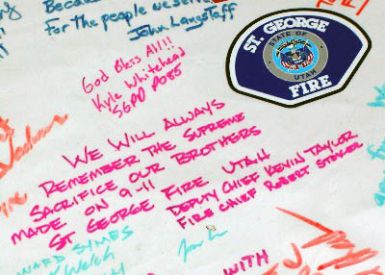 Becau
For the people we serve
John Langstaff
God Bless All!!
Kyle Whitehead
SGPD
ST. GEORGE
STATE OF
UTAH
FIRE
We Will Always
Remember The Supreme
Sacrifice Our Brothers
Made On 9-11
St George Fire Utah
Deputy Chief Kevin Taylor
Fire Chief Robert Stoker
WARD SYMES
Welch
WITH